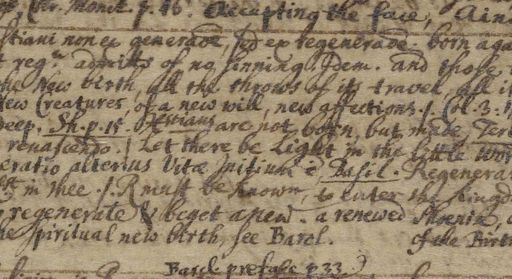 Per. Monit. p. 16. Accepting the face, Aino
stiani non ex generaõe, sed ex regeneraõe. born aga
t reg: admits of no sinning Idem. and those
the New birth, all the throws of its travel, all it
New Creatures, of a new will, new affections. / Col. 3. 1
deep. Sh. p. 15. Xtestians are not born, but made Tert
renascendo. / Let there be Light in the little Wor
eratio alterius Vitæ Initium ẽ Basil. Regenerat
in thee. / R must be known, to enter the kingd
regenerate & beget a new. a renewed Phoenix
the spiritual new birth, see Barcl. of the Birth
Barcl. preface p. 33.